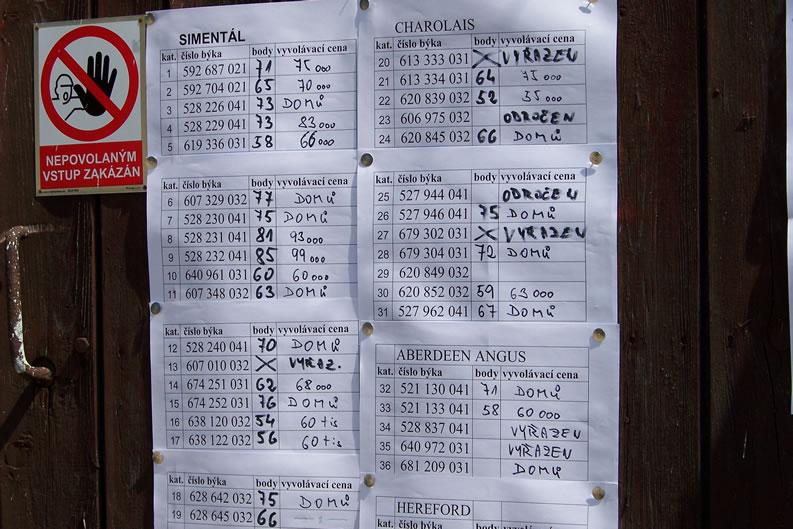 NEPOVOLANÝM
VSTUP ZAKÁZÁN
SIMENTÁL
kat. číslo býka body vyvolávací cena
1 592 687 021 71 75 000
2 592 704 021 65 70 000
3 528 226 041 73 DOMŮ
4 528 229 041 73 83 000
5 619 336 031 58 66 000
kat. číslo býka body vyvolávací cena
6 607 329 032 77 DOMŮ
7 528 230 041 75 DOMŮ
8 528 231 041 81 93 000
9 528 232 041 85 99 000
10 640 961 031 60 60 000
11 607 348 032 63 DOMŮ
kat. číslo býka body vyvolávací cena
12 528 240 041 70 DOMŮ
13 607 010 032 X VYŘAZ.
14 674 251 031 62 68 000
15 674 252 031 76 DOMŮ
16 638 120 032 54 60 tis
17 638 122 032 56 60 tis
kat. číslo býka body vyvolávací cena
18 628 642 032 75 DOMŮ
19 628 645 032 66
CHAROLAIS
kat. číslo býka body vyvolávací cena
20 613 333 031 X VYŘAZEN
21 613 334 031 64 75 000
22 620 839 032 52 35 000
23 606 975 032 ODROČEN
24 620 845 032 66 DOMŮ
25 527 944 041 ODROČEN
26 527 946 041 75 DOMŮ
27 679 302 031 X VYŘAZEN
28 679 304 031 72 DOMŮ
29 620 849 032
30 620 852 032 59 63 000
31 527 962 041 67 DOMŮ
ABERDEEN ANGUS
kat. číslo býka body vyvolávací cena
32 521 130 041 71 DOMŮ
33 521 133 041 58 60 000
34 528 837 041 VYŘAZEN
35 640 972 031 VYŘAZEN
36 681 209 031 DOMŮ
HEREFORD
kat. číslo býka body vyvolávací cena